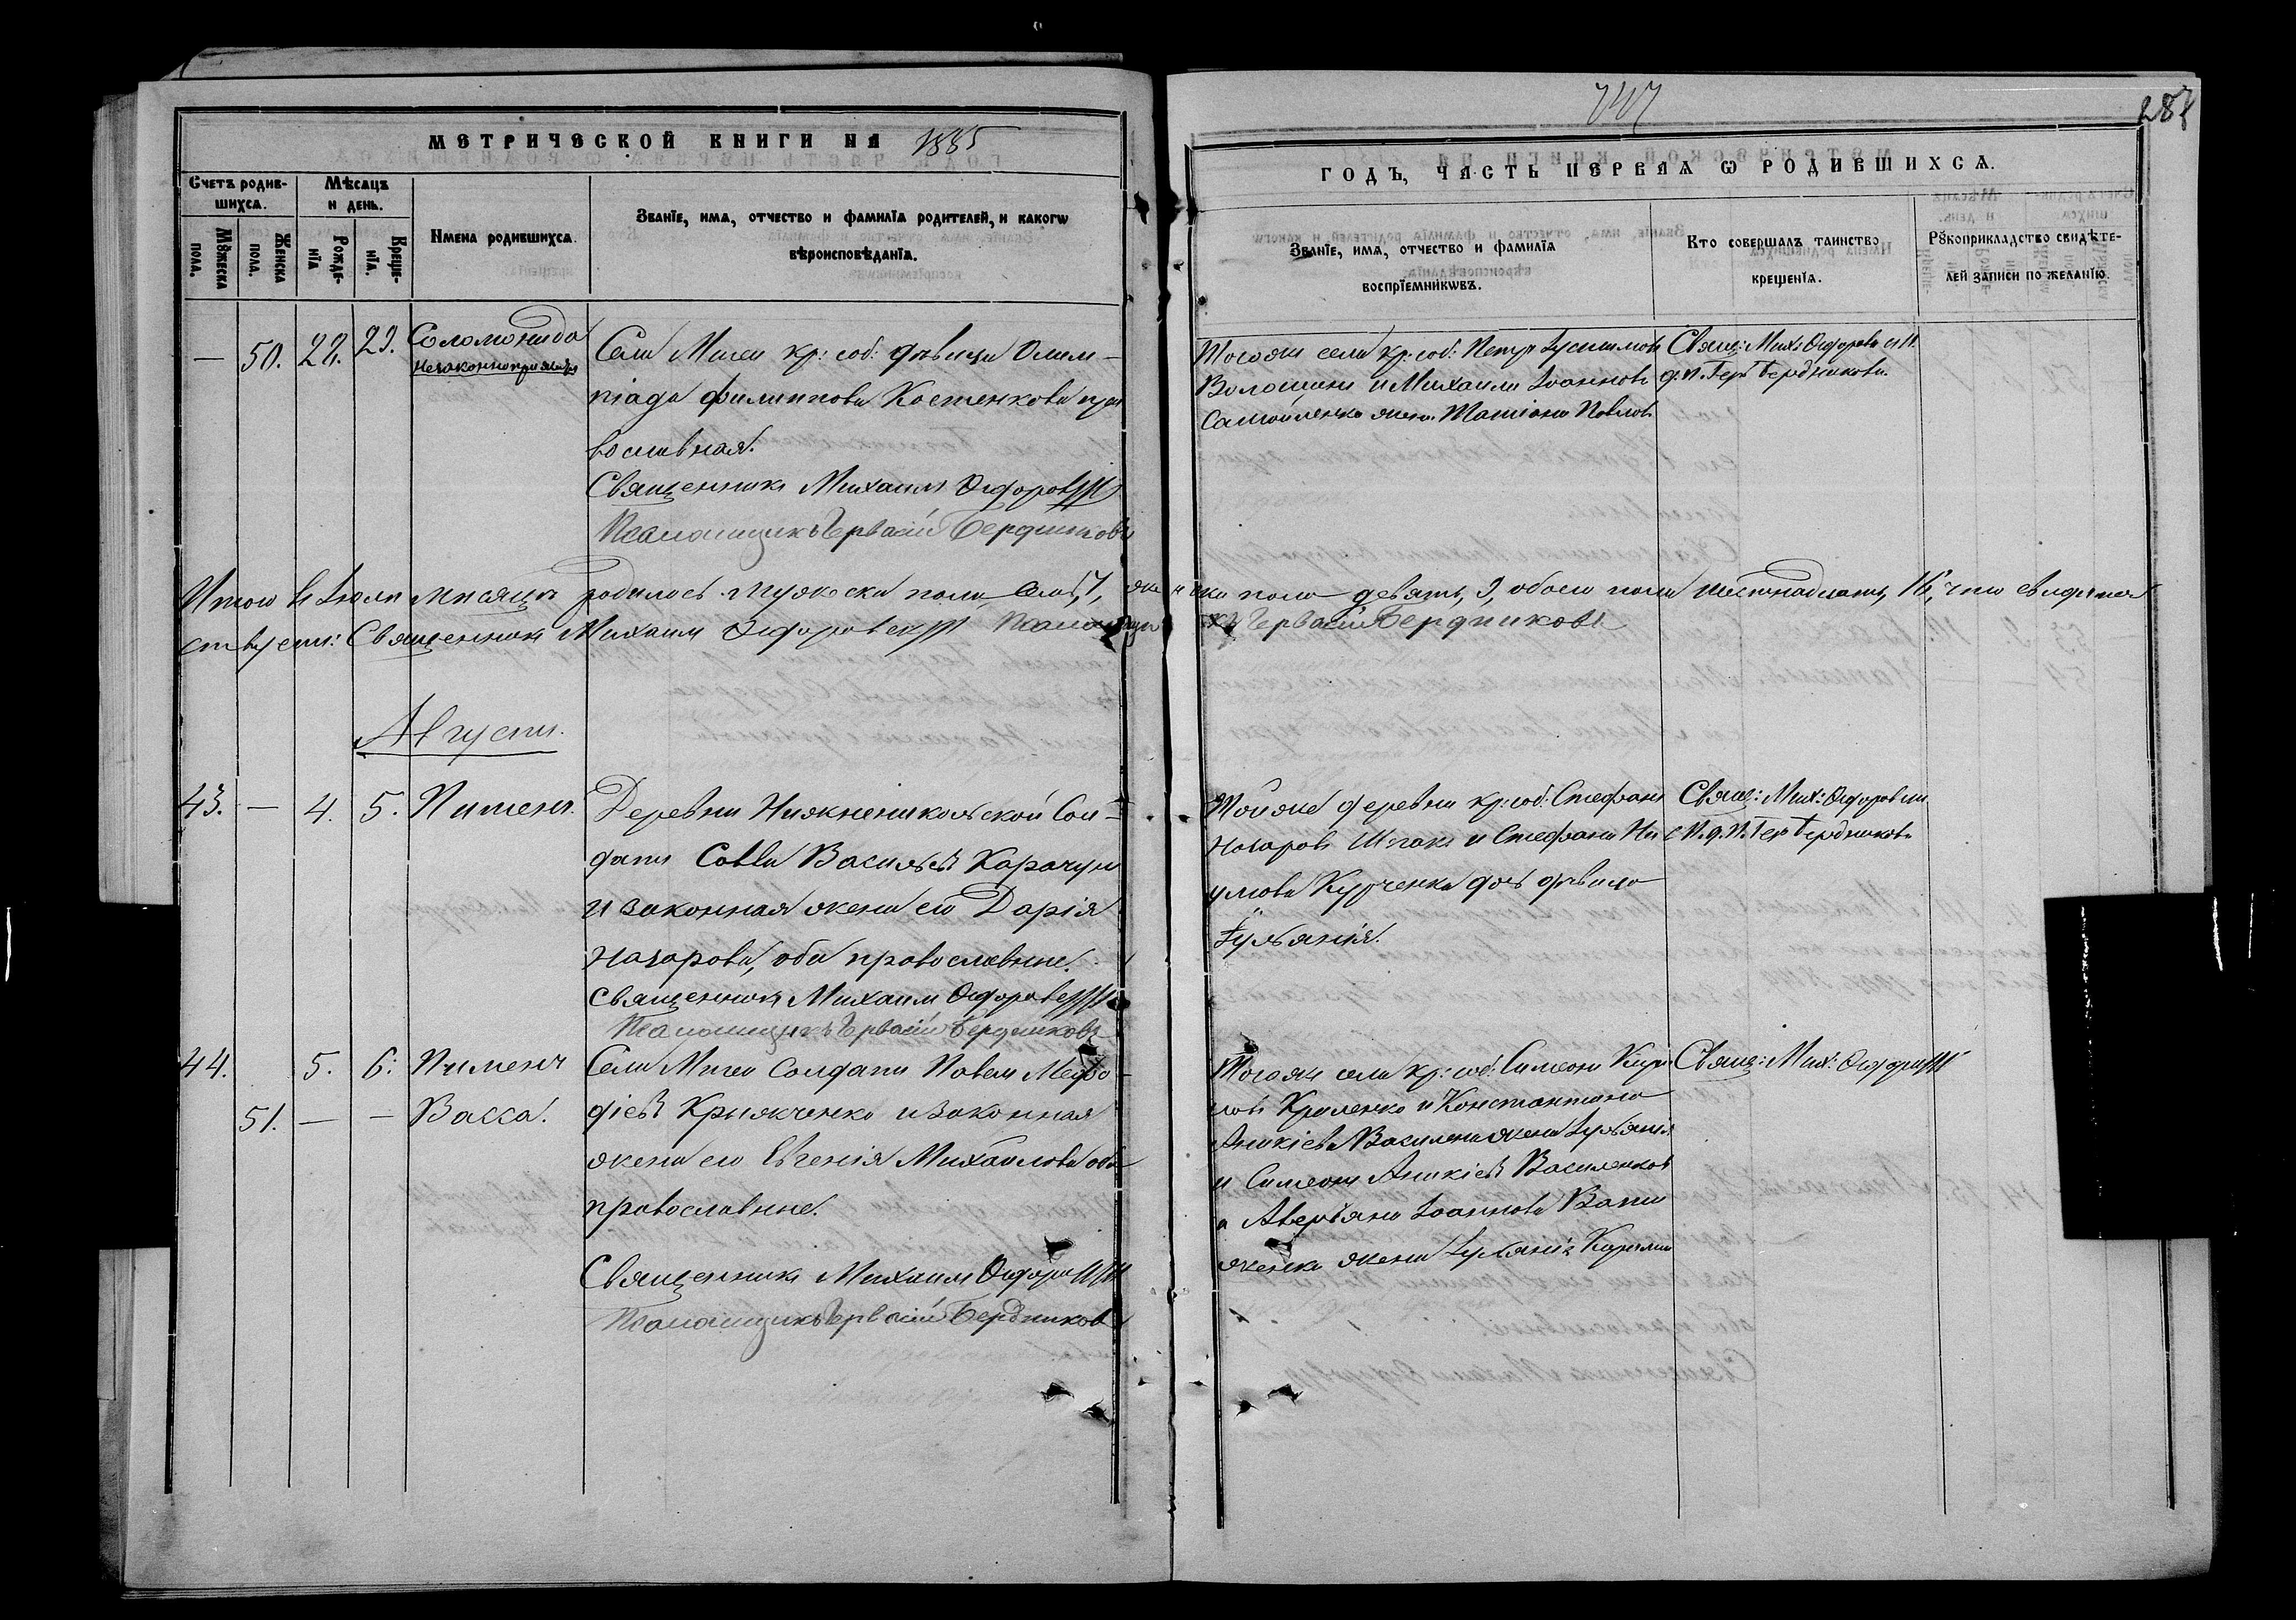 747
287
МЕТРИЧЕСКОЙ КНИГИ НА 1885
ГОДЪ, ЧАСТЬ ПЕРВАЯ Ѡ РОДИВШИХСѦ.
Счетъ родив-
шихсѧ.
Мѣсѧцъ
и день.
Мꙋжеска
пола.
Женска
пола.
Рожде-
нїѧ
Креще-
нїѧ.
Имена родившихсѧ.
Званїе, имѧ, отчество и фамилїѧ родителей, и какогѡ
вѣроисповѣданїѧ.
Званїе, имѧ, отчество и фамилїѧ
воспрїемникѡвъ.
Кто совершалъ таинство
крещенїѧ.
Рꙋкоприкладство свидѣте-
лей записи по желанїю.
— 50. 22. 23. Соломонида
незаконнорожден
Села Мигеи кр: соб: дѣвица Олим-
піада Филиппова Костенкова пра
вославная.
Священникъ Михаилъ Ѳедоров
Псаломщикъ Гервасій Бердниковъ
Тогоже села кр: соб: Петръ
Волошинъ и Михаила Іоаннова
Самойленко жена Татіана Павлов
Свящ: Мих: Ѳедоров
Бердниковъ
Итого въ Іюлѣ мѣсяцѣ родилось мужеска пола семь, 7, женска пола девять, 9, обоего пола шестнадцать, 16, что свидѣтель
ствуетъ: Священникъ Михаилъ Ѳедоров Псаломщикъ Гервасій Бердниковъ
Августъ.
43. — 4. 5. Пименъ.
Деревни Нижненикольской Сол-
датъ Савва Васильевъ Карачунъ
и законная жена его Дарія
Назарова, оба православные.
Священникъ Михаилъ Ѳедоров
Псаломщикъ Гервасій Бердниковъ
Той же деревни кр: соб: Стефанъ
Назаровъ Шпакъ и Стефана На
умова Курченка дочь дѣвица
Іульянія.
Свящ: Мих: Ѳедоров
Бердниковъ
44. 5. 6: Пименъ
51. — — Васса.
Села Мигеи Солдатъ Павелъ Меѳо-
діевъ Крыжченко и законная
жена его Евгенія Михайлова оба
православные.
Священникъ Михаилъ Ѳедоров
Псаломщикъ Гервасій Бердниковъ
Тогоже села кр: соб: Симеонъ Кири
ловъ Кроленко и Константина
Аникіева жена Іульянія
и Симеонъ Аникіевъ Василенков
а Аверьяна Іоаннова
женка жена Іульянія
Свящ: Мих: Ѳедоров